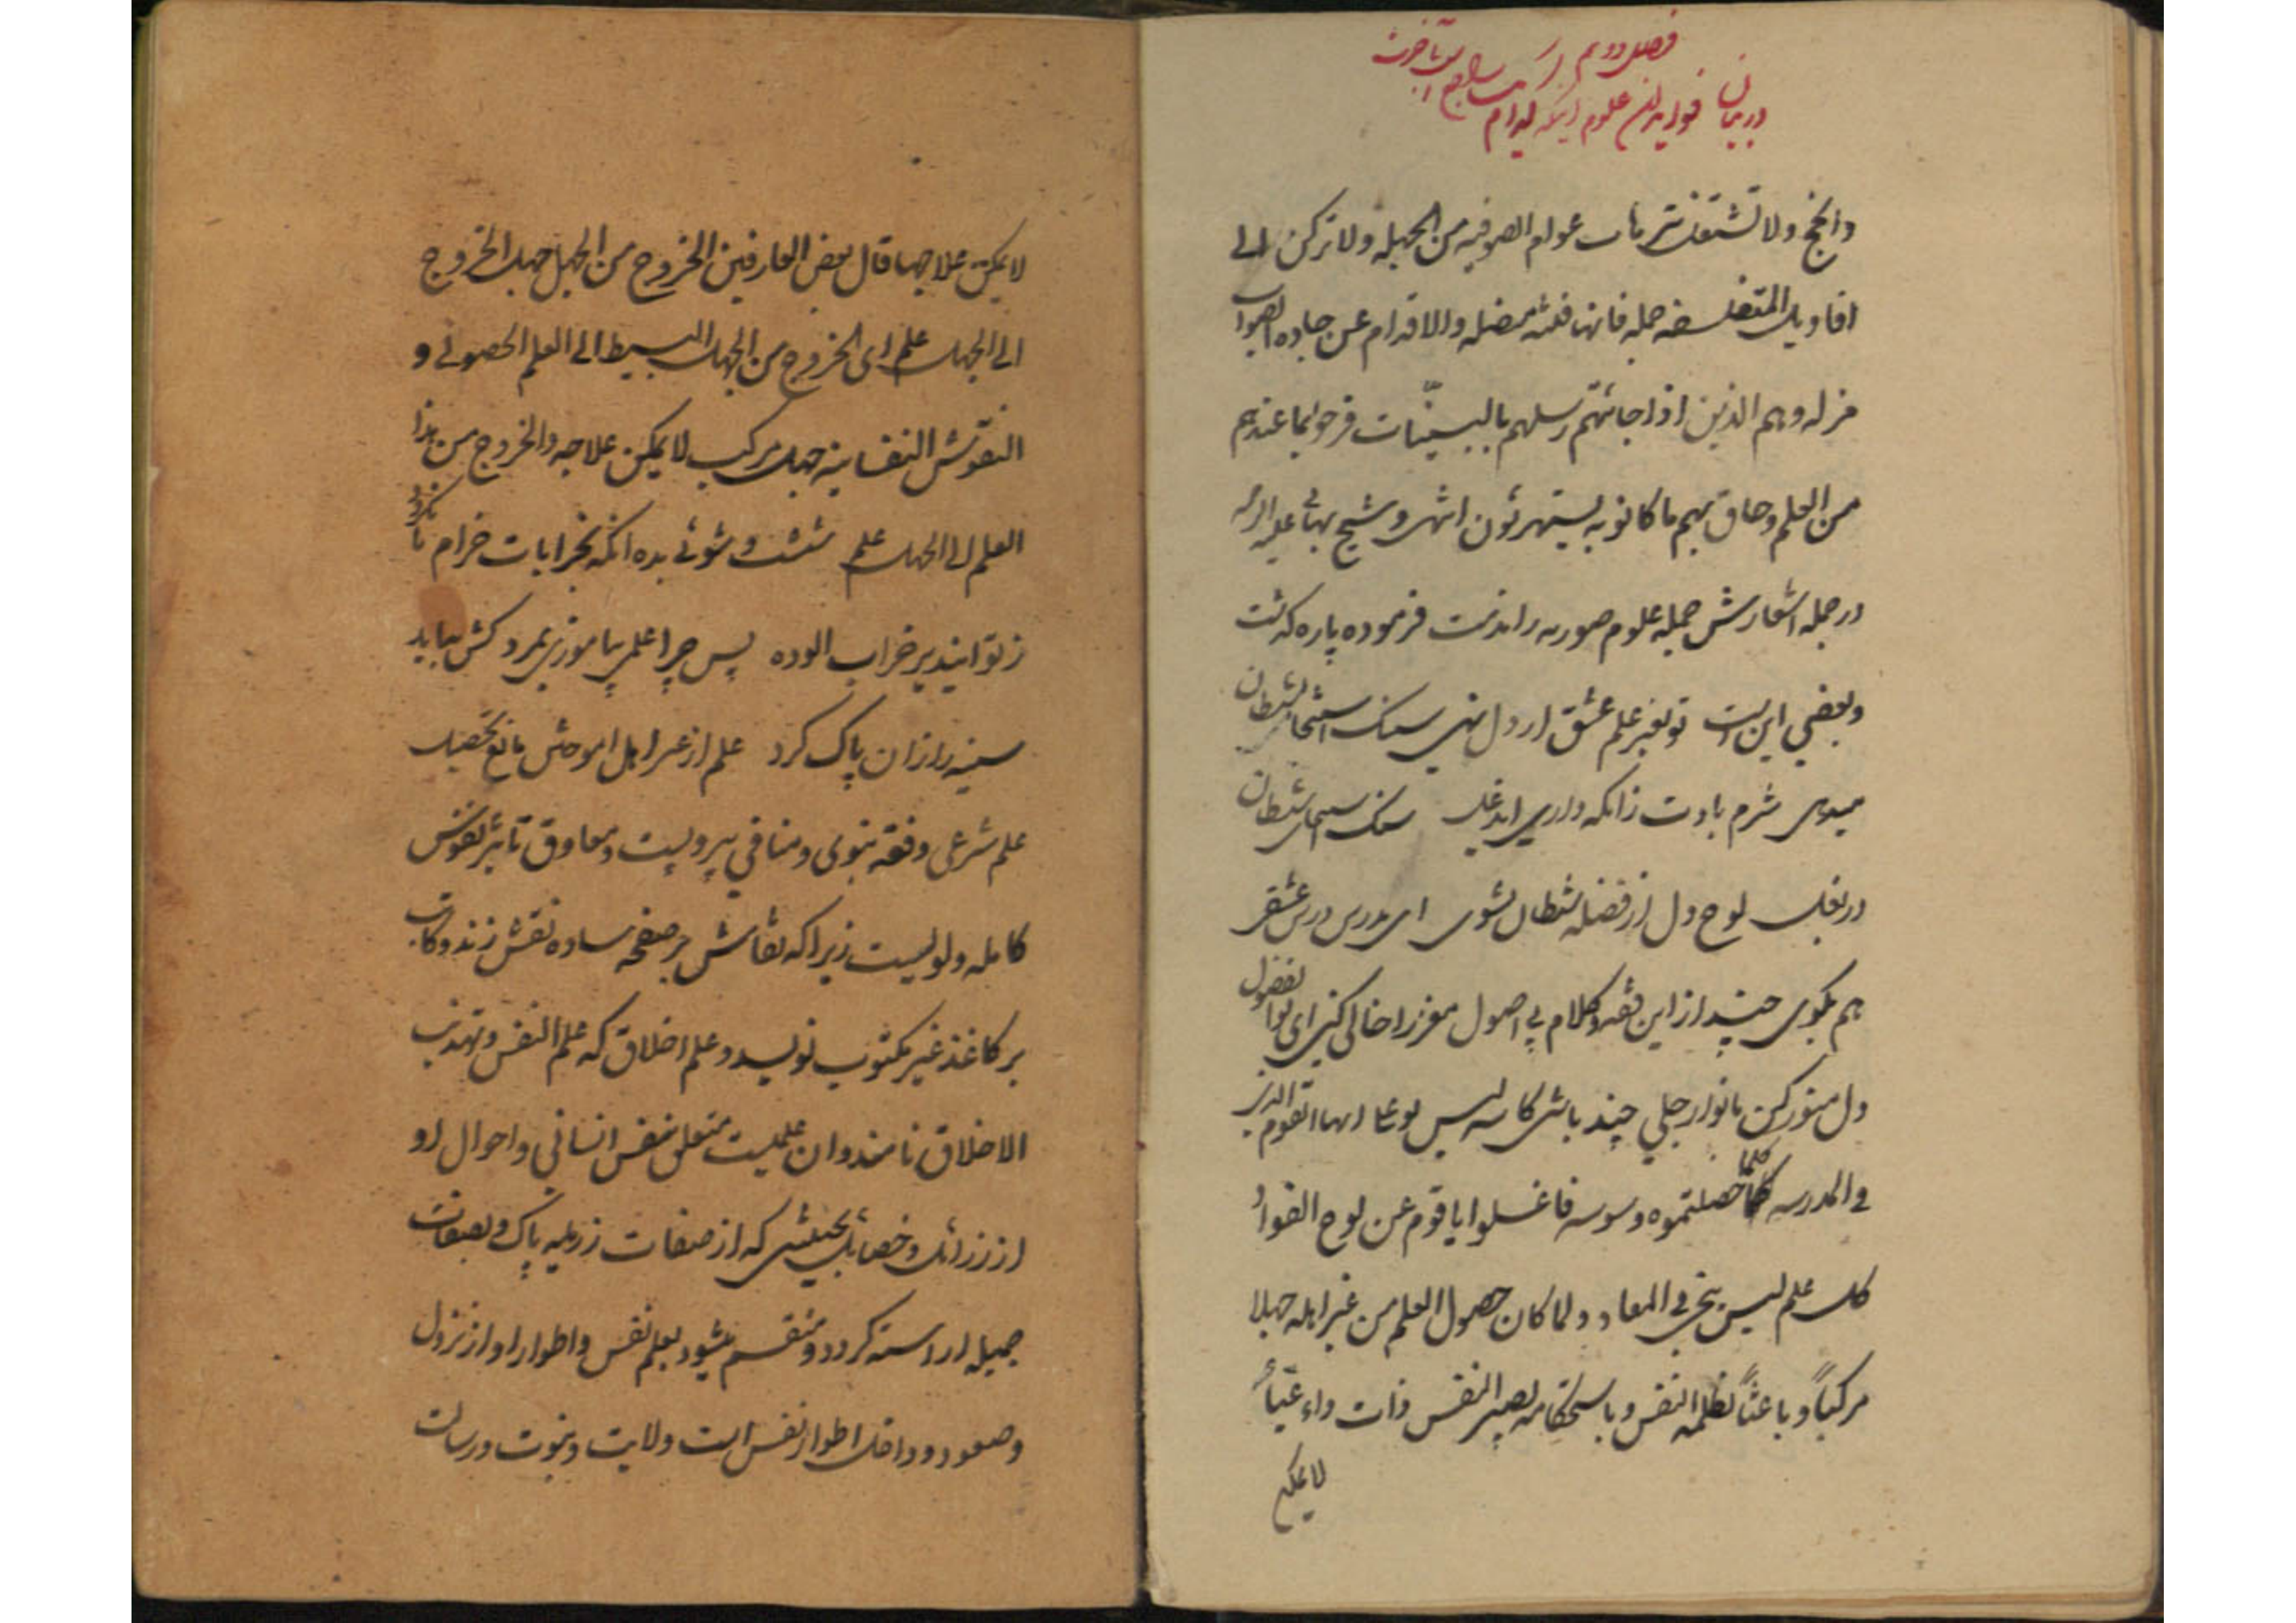 فصل دوم
در بیان فواید این علوم اینکه کدام
والحجج ولا تشتغل بترهات عوام الصوفیه من الجهله ولا ترکن الی
اقاویل المتفلسفه جمله فانها فتنه مضله والاقدام عن جاده الصواب
مزله وهم الذین اذا جائتهم رسلهم بالبینات فرحوا بما عندهم
من العلم وحاق بهم ما کانوا به یستهزئون انتهی و شیخ بهائی علیه الرحمه
در جمله اشعارش جمله علوم صوریه را مذمت فرموده پاره گذشت
وبعضی این است تو بغیر علم عشق ار دل نهی سنک استنجا بشیطان
میدهی شرم بادت زانکه داری ای دغل سنک استنجای شیطان
در بغل لوح دل از فضله شیطان بشوی ای مدرس درس عشقی
هم بکوی چند از این فقه و کلام بی اصول مغز را خالی کنی ای بوالفضول
دل منور کن بانوار جلی چند باشی کاسه لیس بوعلی ایها القوم الذی
فی المدرسه کلما حصلتموه وسوسه فاغسلوا یا قوم عن لوح الفواد
کل علم لیس ینجی فی المعاد ولما کان حصول العلم من غیر اهله جهلا
مرکباً وباعثاً لظلمه النفس وباستحکامه یصیر النفس ذات داء عیاء
لا یمکن
لا یمکن علاجها قال بعض العارفین الخروج من الجهل جهل الخروج
الی الجهل علم ای الخروج من الجهل البسیط الی العلم الحصولی و
النقوش النفسانیه جهل مرکب لا یمکن علاجه والخروج من هذا
العلم الی الجهل علم شست و شوئی بده آنکه بخرابات خرام تا نکردد
ز تو این دیر خراب الوده پس چرا علمی بیاموزی بمرد کش بباید
سینه را زان پاک کرد علم از غیر اهل اموختن مانع تحصیل
علم شرعی و فقه نبوی و منافی پیرویست و معاوق تاثیر نفوس
کامله ولویست زیرا که نقاش بر صفحه ساده نقش زند و کاتب
بر کاغذ غیر مکتوب نویسد و علم اخلاق که علم النفس و تهذیب
الاخلاق نامند و ان علمیست متعلق بنفس انسانی و احوال او
از رزائل و خصایل بحیثیتی که از صفات رزیله پاک و بصفات
جمیله اراسته کردد و منقسم میشود بعلم نفس و اطوار او از نزول
و صعود و داخل اطوار نفس است ولایت و نبوت و رسالت